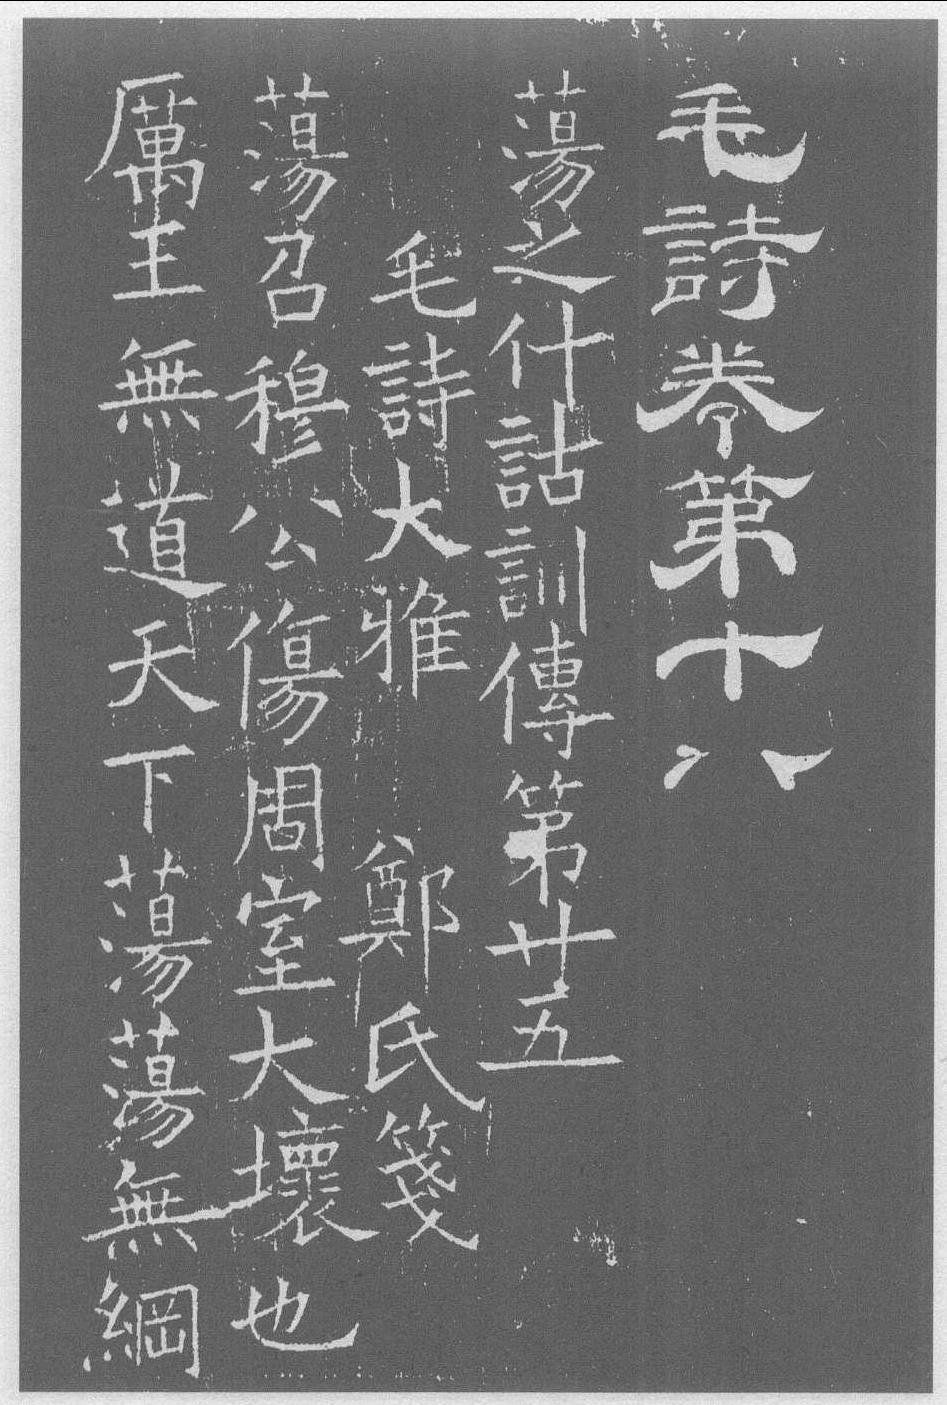 毛詩卷第十八
蕩之什詁訓傳第廿五
毛詩大雅 鄭氏箋
蕩召穆公傷周室大壞也
厲王無道天下蕩蕩無綱